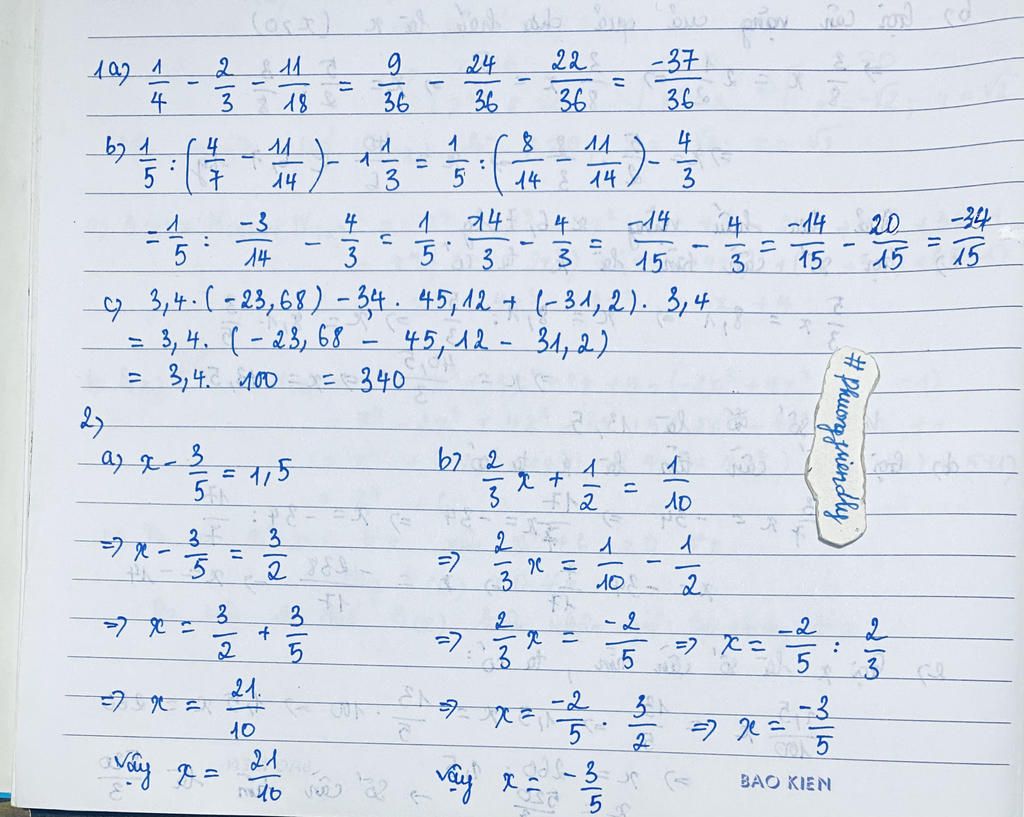 1a) 1/4 - 2/3 - 11/18 = 9/36 - 24/36 - 22/36 = -37/36
b) 1/5 : (4/7 - 11/14) - 1 1/3 = 1/5 : (8/14 - 11/14) - 4/3
= 1/5 : -3/14 - 4/3 = 1/5 . -14/3 - 4/3 = -14/15 - 4/3 = -14/15 - 20/15 = -34/15
c) 3,4 . (-23,68) - 3,4 . 45,12 + (-31,2) . 3,4
= 3,4 . (-23,68 - 45,12 - 31,2)
= 3,4 . 100 = 340
2)
a) x - 3/5 = 1,5
=> x - 3/5 = 3/2
=> x = 3/2 + 3/5
=> x = 21/10
vậy x = 21/10
b) 2/3 x + 1/2 = 1/10
=> 2/3 x = 1/10 - 1/2
=> 2/3 x = -2/5 => x = -2/5 : 2/3
=> x = -2/5 . 3/2 => x = -3/5
vậy x = -3/5
#phuongfriendly
BAO KIEN